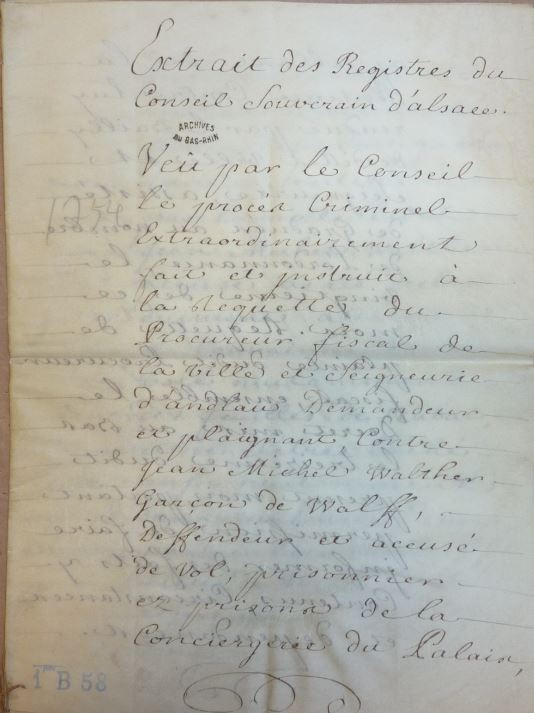 Extrait des Registres du
Conseil Souverain d'alsace.
ARCHIVES
DU BAS-RHIN
Veû par le Conseil
le procés Criminel
Extraordinairement
fait et jnstruit à
la Requette du
Procureur fiscal de
la ville et Seigneurie
d'andlau Demandeur
et plaignant Contre
Jean Michel Walther
Garçon de Walff,
Deffendeur et accusé
de vol, prisonnier
ez prisons de la
Conciergerie du Palais,
1 B 58